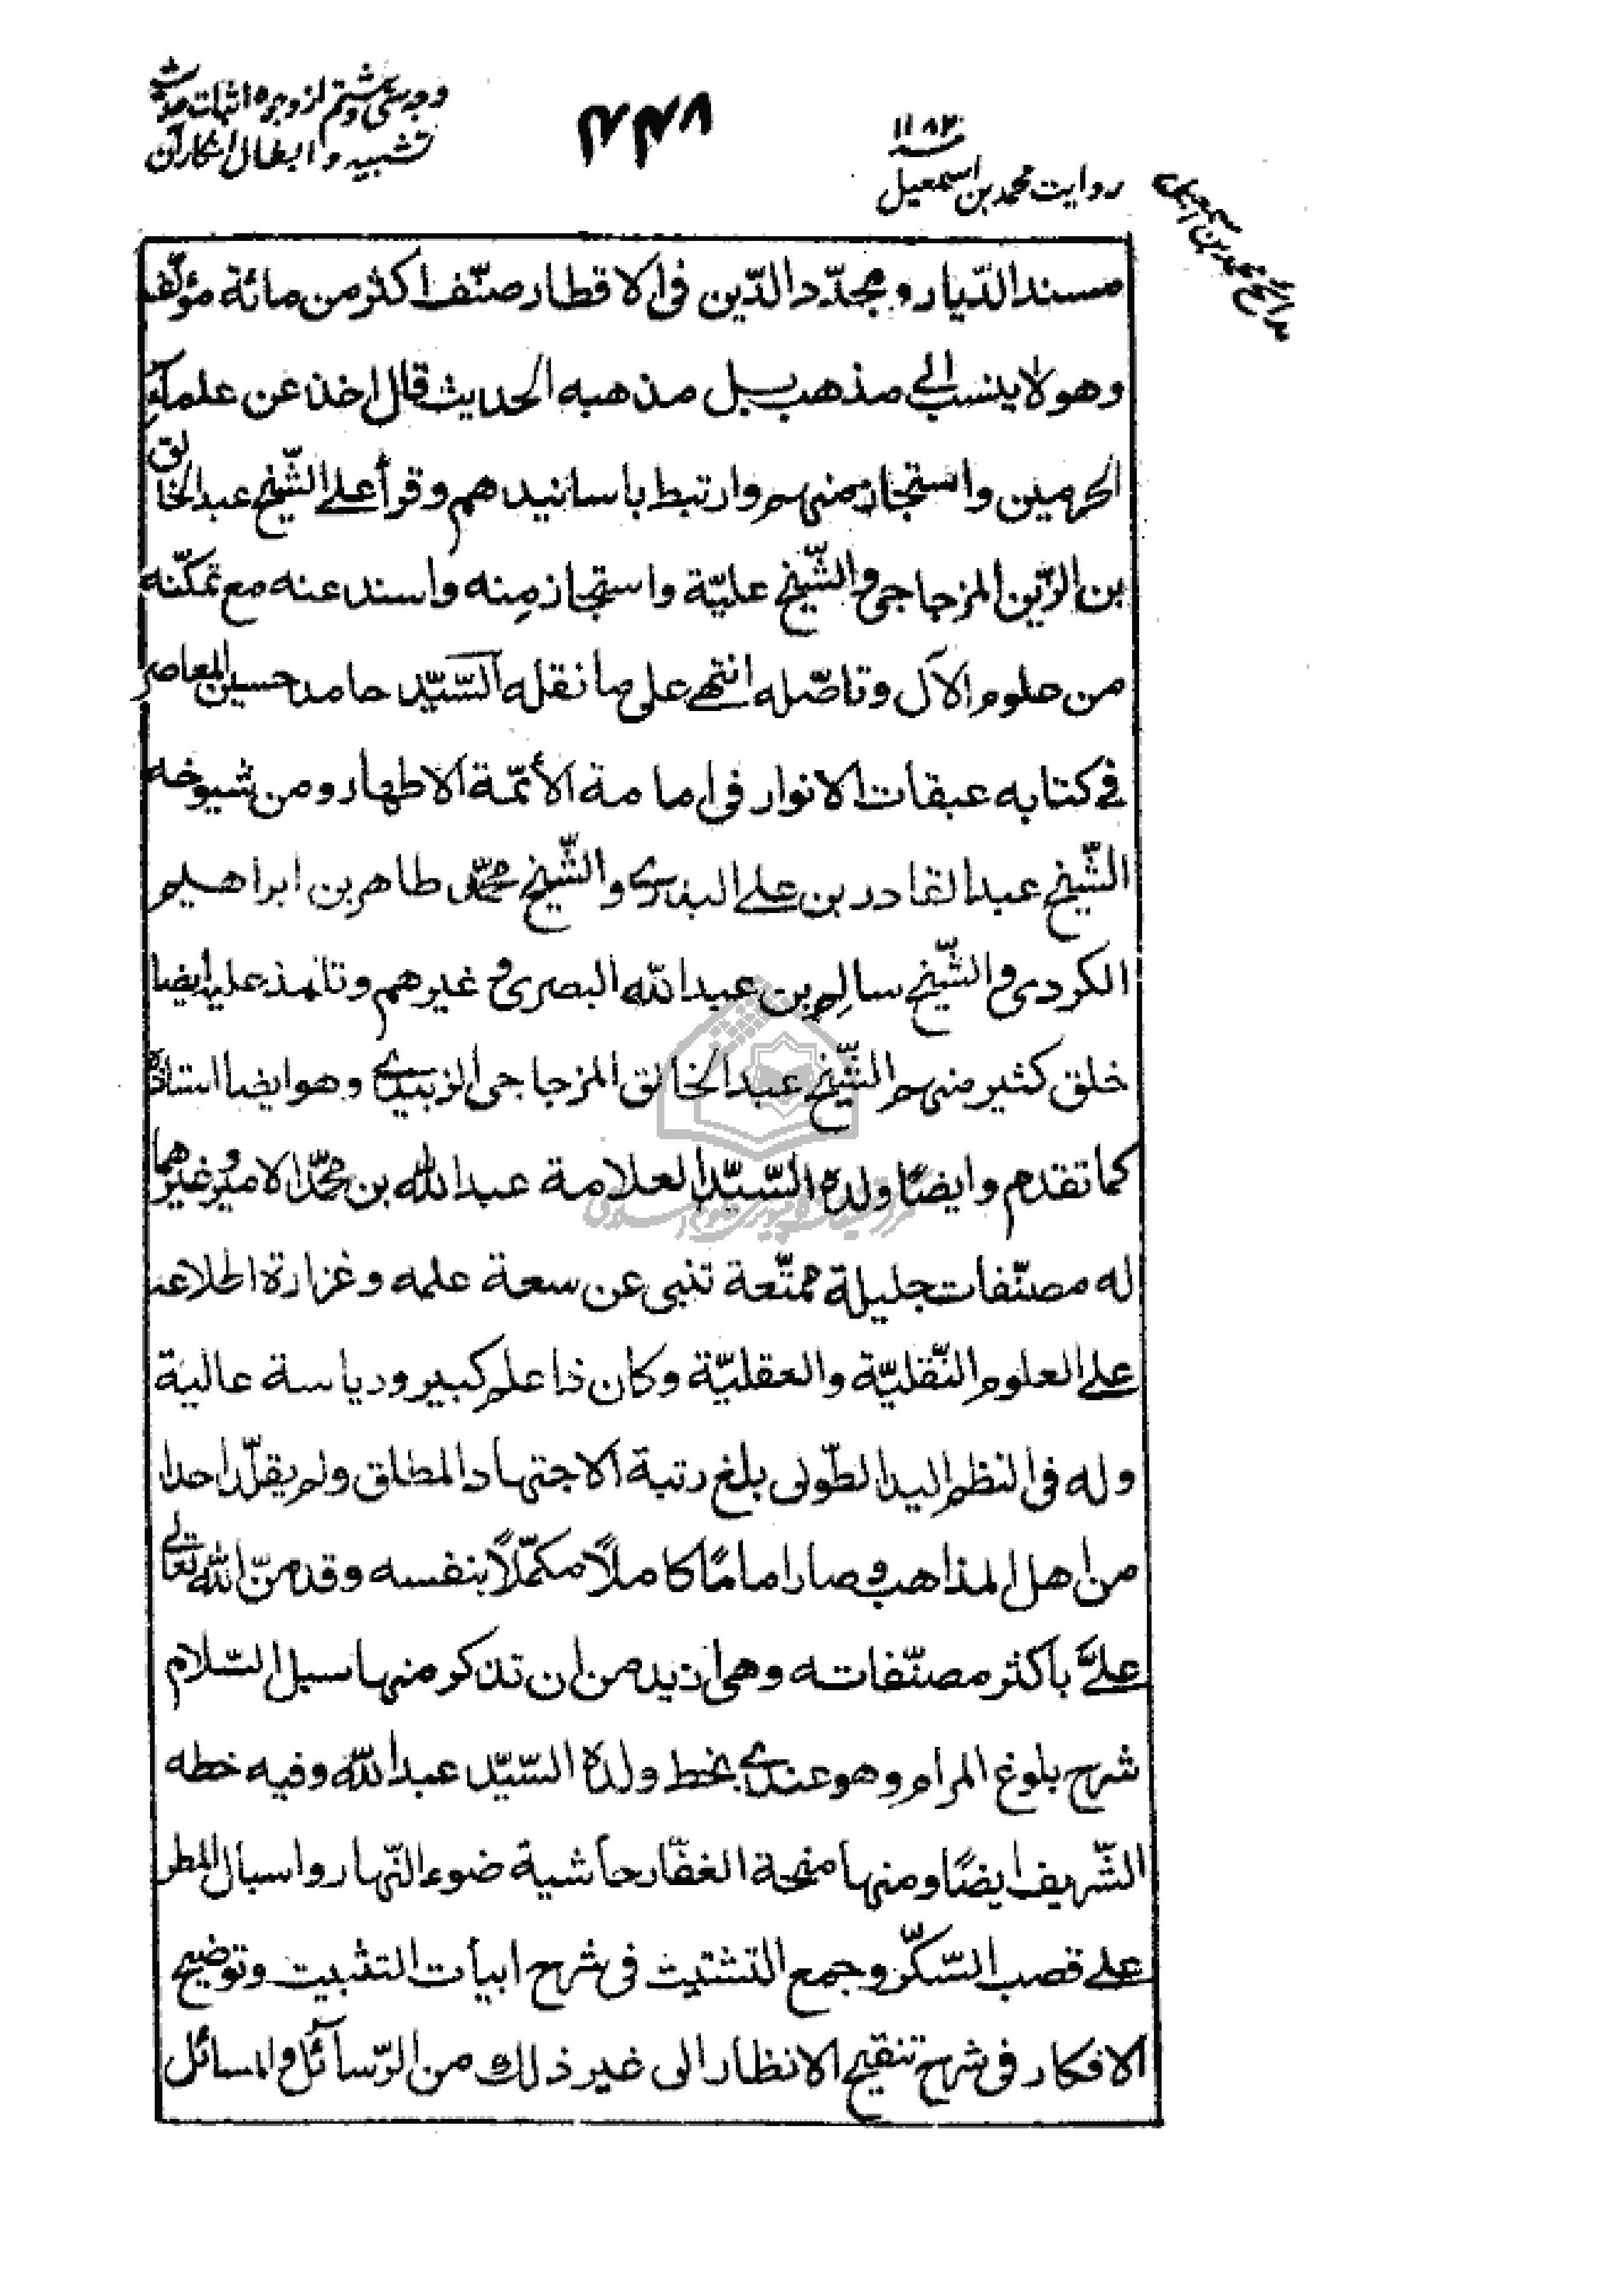 وجه سی و هشتم از وجوه اثبات حدیث
تشبیه و ابطال انکار آن
۴۴۸
۱۱۸۲
روایت محمد بن اسمعیل
مدائح محمد بن اسمعیل
مسند الدّیار و مجدّد الدّین فی الاقطار صنّف اکثر من مائة مؤلّف
وهو لا ینسب الی مذهب بل مذهبه الحدیث قال اخذ عن علماء
الحرمین و استجاز منهم وارتبط باسانیدهم وقرأ علی الشّیخ عبد الخالق
بن الزّین المزجاجی و الشّیخ علیّة واستجاز مِنه واسند عنه مع تمکّنه
من علوم الآل وتاصّله انتهی علی ما نقله السّیّد حامد حسین المعاصر
فی کتابه عبقات الانوار فی امامة الأئمّة الاطهار ومن شیوخه
الشّیخ عبد القادر بن علی البدری والشّیخ محمّد طاهر بن ابراهیم
الکردی و الشّیخ سالم بن عبد الله البصری و غیرهم وتلمذ علیه ایضا
خلق کثیر منهم الشّیخ عبد الخالق المزجاجی الزبیدی وهو ایضا استاذه
کما تقدم وایضًا ولده السّیّد العلامة عبد الله بن محمّد الامیر وغیرهما
له مصنّفات جلیلة ممتّعة تنبی عن سعة علمه وغزارة اطلاعه
علی العلوم النّقلیّة والعقلیّة وکان ذا علم کبیر وریاسة عالیة
وله فی النظم الید الطّولی بلغ رتبة الاجتهاد المطلق ولم یقلّد احدا
من اهل المذاهب و صار امامًا کاملًا مکمّلًا بنفسه وقد منّ الله تعالی
علیّ باکثر مصنّفاته وهی ازید من ان تذکر منها سبل السّلام
شرح بلوغ المرام وهو عندی بخط ولده السّیّد عبد الله وفیه خطه
الشّریف ایضًا ومنها منحة الغفّار حاشیة ضوء النّهار واسبال المطر
علی قصب السّکّر وجمع التشتیت فی شرح ابیات التثبیت وتوضیح
الافکار فی شرح تنقیح الانظار الی غیر ذلك من الرّسائل و المسائل